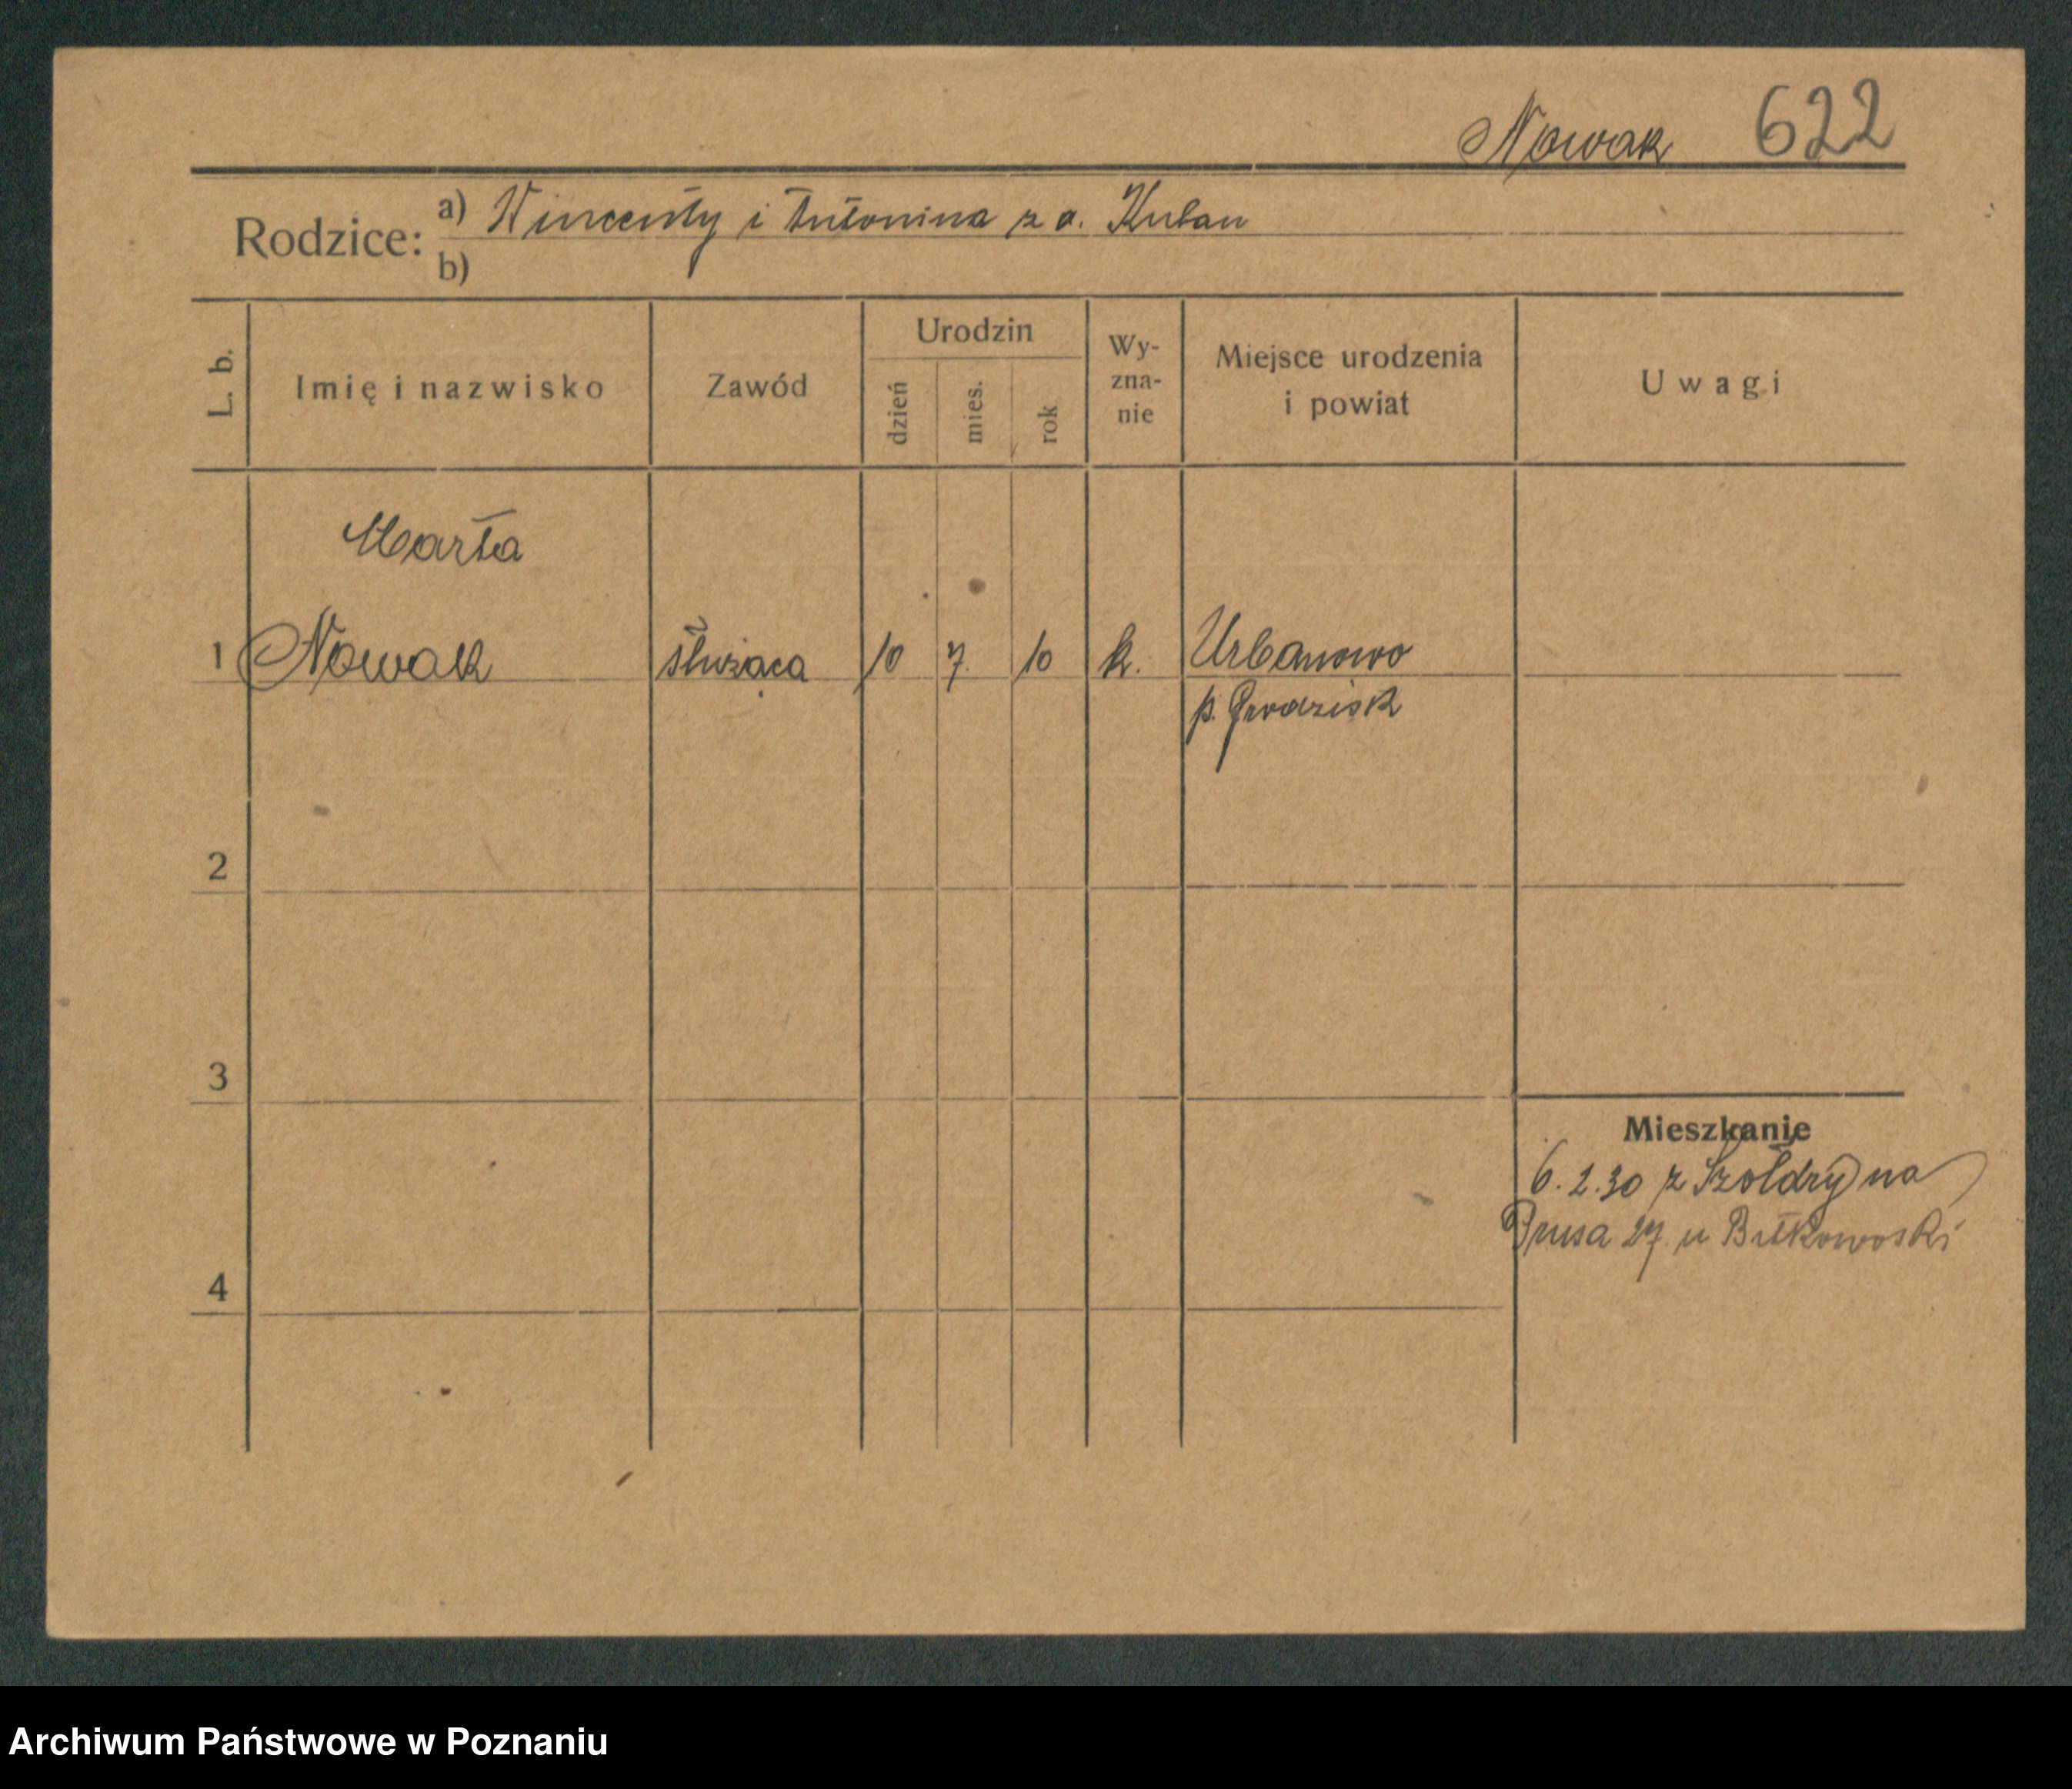 Nowak 622
Rodzice: a) Wincenty i Antonina z d. Kuban
b)
L. b.
Imię i nazwisko
Zawód
Urodzin
dzień
mies.
rok
Wy-
zna-
nie
Miejsce urodzenia
i powiat
Uwagi
Marta
1 Nowak służąca 10 7. 10 k. Urbanowo
p. Grodzisk
2
3
Mieszkanie
6.2.30 z Szołdry na
Prusa 27 u
4
Archiwum Państwowe w Poznaniu